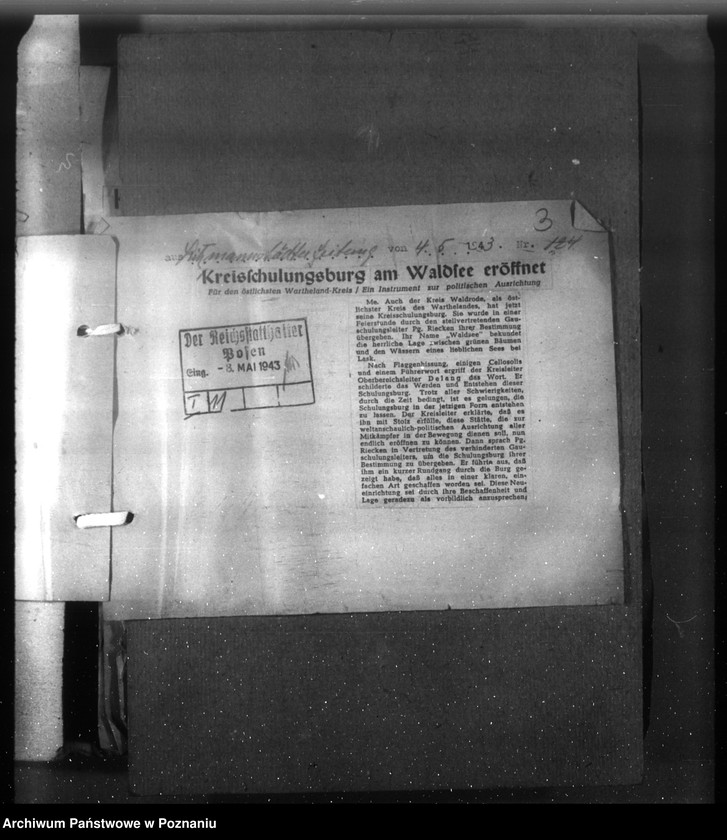 3
aus Litzmannstädter Zeitung von 4. 5. 1943. Nr. 124
Kreisschulungsburg am Waldsee eröffnet
Für den östlichsten Wartheland-Kreis / Ein Instrument zur politischen Ausrichtung
Der Reichsstatthalter
Posen
Eing. - 8. MAI 1943
I
Me. Auch der Kreis Waldrode, als öst-
lichster Kreis des Warthelandes, hat jetzt
seine Kreisschulungsburg. Sie wurde in einer
Feierstunde durch den stellvertretenden Gau-
schulungsleiter Pg. Riecken ihrer Bestimmung
übergeben. Ihr Name „Waldsee" bekundet
die herrliche Lage zwischen grünen Bäumen
und den Wässern eines lieblichen Sees bei
Lask.
Nach Flaggenhissung, einigen Cellosolis
und einem Führerwort ergriff der Kreisleiter
Oberbereichsleiter Delang das Wort. Er
schilderte das Werden und Entstehen dieser
Schulungsburg. Trotz aller Schwierigkeiten,
durch die Zeit bedingt, ist es gelungen, die
Schulungsburg in der jetzigen Form entstehen
zu lassen. Der Kreisleiter erklärte, daß es
ihn mit Stolz erfülle, diese Stätte, die zur
weltanschaulich-politischen Ausrichtung aller
Mitkämpfer in der Bewegung dienen soll, nun
endlich eröffnen zu können. Dann sprach Pg.
Riecken in Vertretung des verhinderten Gau-
schulungsleiters, um die Schulungsburg ihrer
Bestimmung zu übergeben. Er führte aus, daß
ihm ein kurzer Rundgang durch die Burg ge-
zeigt habe, daß alles in einer klaren, ein-
fachen Art geschaffen worden sei. Diese Neu-
einrichtung sei durch ihre Beschaffenheit und
Lage geradezu als vorbildlich anzusprechen;
Archiwum Państwowe w Poznaniu